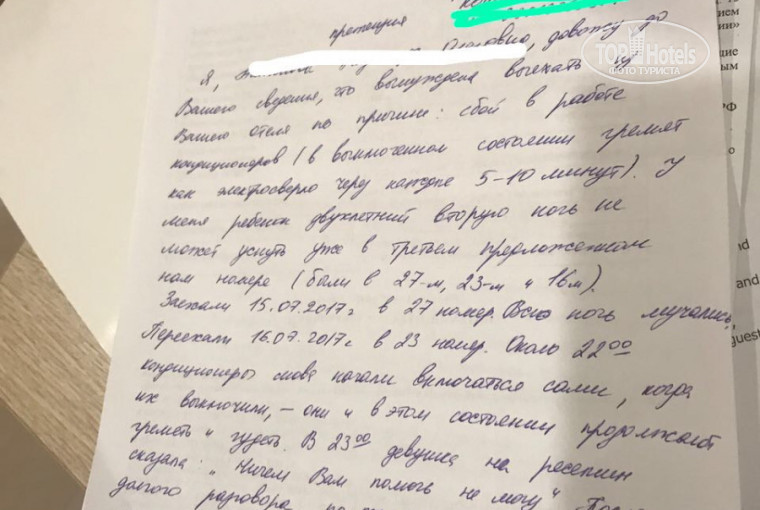 претензия
Я, довожу до
Вашего сведения, что вынуждена выехать из
Вашего отеля по причине: сбой в работе
кондиционеров (в выключенном состоянии гремят
как электросверло через каждые 5-10 минут). У
меня ребенок двухлетний вторую ночь не
может уснуть уже в третьем предложенном
нам номере (были в 27-м, 23-м и 16м).
Заехали 15.07.2017г в 27 номер. Всю ночь мучались,
Переехали 16.07.2017г. в 23 номер. Около 22⁰⁰
кондиционеры снова начали включаться сами, когда
их выключили, - они и в этом состоянии продолжают
греметь и гудеть. В 23⁰⁰ девушка на ресепшн
сказала: "Ничем Вам помочь не могу"
долгого разговора
TOPHotels
ФОТО ТУРИСТА
РФ
nd
and
guest